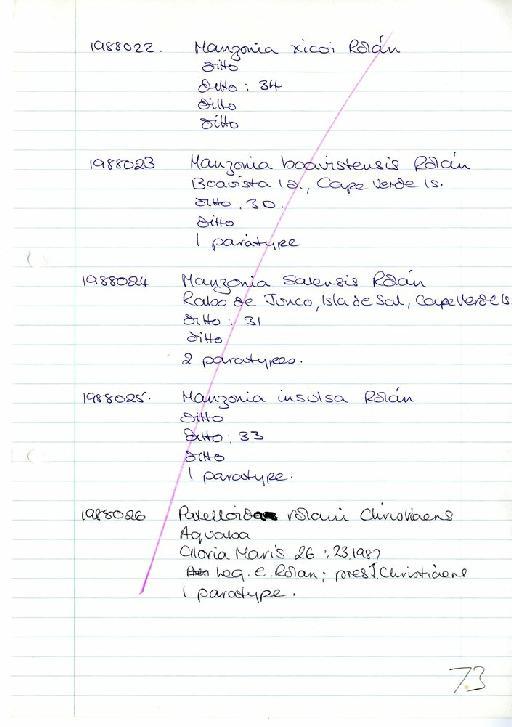 1988022. Manzonia xicoi Rolán
ditto
ditto : 34
ditto
ditto
1988023 Manzonia boavistensis Rolán
Boavista Is., Cape Verde Is.
ditto . 30.
ditto
1 paratype
1988024 Manzonia salensis Rolán
Rabo de Junco, Isla de Sal, Cape Verde Is
ditto : 31
ditto
2 paratypes.
1988025. Manzonia insulsa Rolán
ditto
ditto . 33
ditto
1 paratype.
1988026 rolani Christiaens
Gloria Maris 26 : 23, 1987
Leg. E. Rolan ; pres J. Christiaens
1 paratype.
73